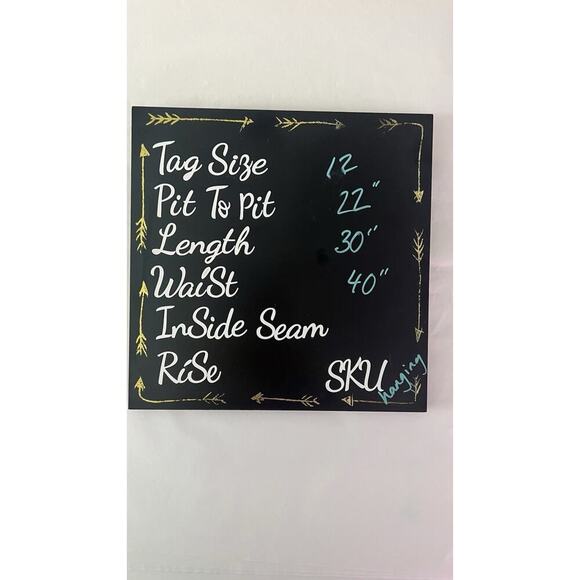 Tag Size 12
Pit To Pit 22"
Length 30"
WaiSt 40"
InSide Seam
RiSe SKU hanging